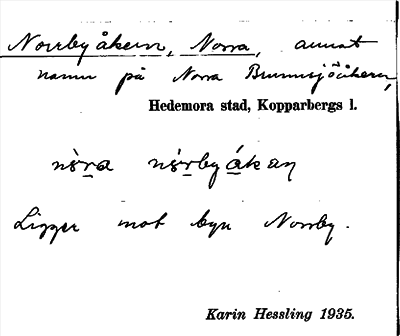 Norrbyåkern, Norra, annat
namn på Norra Brunnsjöåkern,
Hedemora stad, Kopparbergs l.
nòra nòrbyákan
Ligger mot byn Norrby.
Karin Hessling 1935.